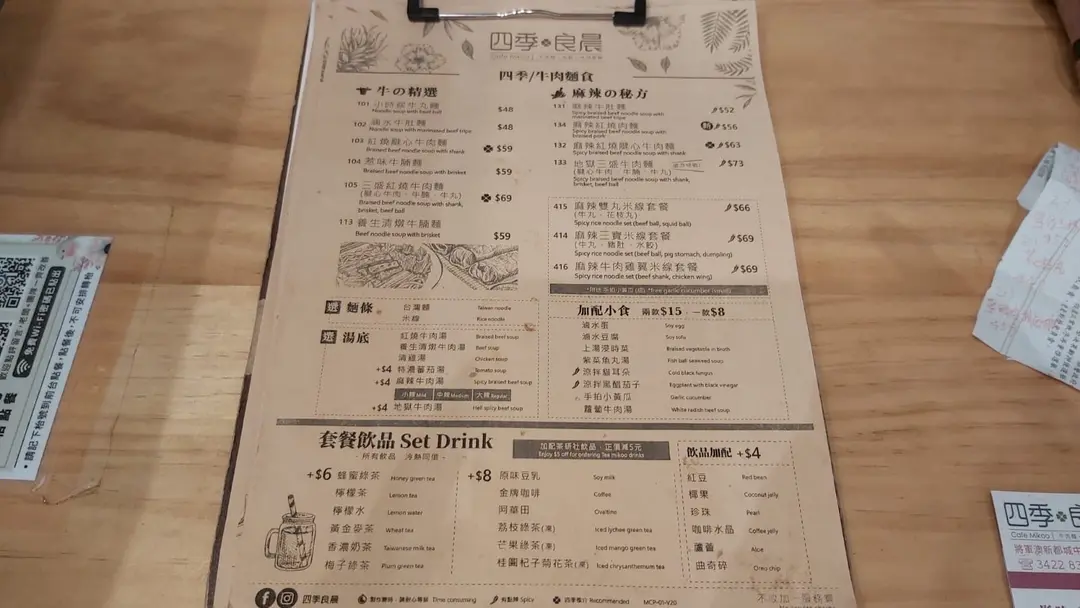 四季良晨
四季/牛肉麵食
牛の精選
101 小時候牛丸麵 $48
Noodle soup with beef ball
102 滷水牛肚麵 $48
Noodle soup with marinated beef tripe
103 紅燒腱心牛肉麵 $59
Braised beef noodle soup with shank
104 惹味牛腩麵 $59
Braised beef noodle soup with brisket
105 三盛紅燒牛肉麵 $69
(腱心牛肉、牛腩、牛丸)
Braised beef noodle soup with shank,
brisket, beef ball
113 養生清燉牛腩麵 $59
Beef noodle soup with brisket
麻辣の秘方
131 麻辣牛肚麵 $52
Spicy braised beef noodle soup with
marinated beef tripe
134 麻辣紅燒肉麵 $56
Spicy braised beef noodle soup with
braised pork
132 麻辣紅燒腱心牛肉麵 $63
Spicy braised beef noodle soup with shank
133 地獄三盛牛肉麵 $73
(腱心牛肉、牛腩、牛丸)
Spicy braised beef noodle soup with shank,
brisket, beef ball
415 麻辣雙丸米線套餐 $66
(牛丸、花枝丸)
Spicy rice noodle set (beef ball, squid ball)
414 麻辣三寶米線套餐 $69
(牛丸、豬肚、水餃)
Spicy rice noodle set (beef ball, pig stomach, dumpling)
416 麻辣牛肉雞翼米線套餐 $69
Spicy rice noodle set (beef shank, chicken wing)
選 麵條
台灣麵 Taiwan noodle
米線 Rice noodle
選 湯底
紅燒牛肉湯 Braised beef soup
養生清燉牛肉湯 Beef soup
清雞湯 Chicken broth
+$4 特濃蕃茄湯 Tomato soup
+$4 麻辣牛肉湯 Spicy braised beef soup
小辣 Mild 中辣 Medium 大辣 Regular
+$4 地獄牛肉湯 Hell spicy beef soup
加配小食 兩款$15、一款$8
滷水蛋 Soy egg
滷水豆腐 Soy tofu
上湯浸時菜 Braised vegetable in broth
紫菜魚丸湯 Fish ball seaweed soup
涼拌貓耳朵 Cold black fungus
涼拌黑醋茄子 Eggplant with black vinegar
手拍小黃瓜 Garlic cucumber
蘿蔔牛肉湯 White radish beef soup
套餐飲品 Set Drink
- 所有飲品 冷熱同價 -
加配茶研社飲品，正價減5元
Enjoy $5 off for entering Tea mikoo drinks
+$6 蜂蜜綠茶 Honey green tea
檸檬茶 Lemon tea
檸檬水 Lemon water
黃金麥茶 Wheat tea
香濃奶茶 Taiwanese milk tea
梅子綠茶 Plum green tea
+$8 原味豆乳 Soy milk
金牌咖啡 Coffee
阿華田 Ovaltine
荔枝綠茶(凍) Iced lychee green tea
芒果綠茶(凍) Iced mango green tea
桂圓杞子菊花茶(凍) Iced chrysanthemum tea
飲品加配 +$4
紅豆 Red bean
椰果 Coconut jelly
珍珠 Pearl
咖啡水晶 Coffee jelly
蘆薈 Aloe
曲奇碎 Oreo chip
四季良晨
製作需時、請耐心等候 Time consuming
有點辣 Spicy
四季推介 Recommended
MCP-01-V20
不收加一服務費
免費Wi-Fi密碼已貼出
*請記下枱號到前台點餐，點餐後，不可安排轉枱
四季良
Cafe Mikoo
將軍澳新都城中
3422 83